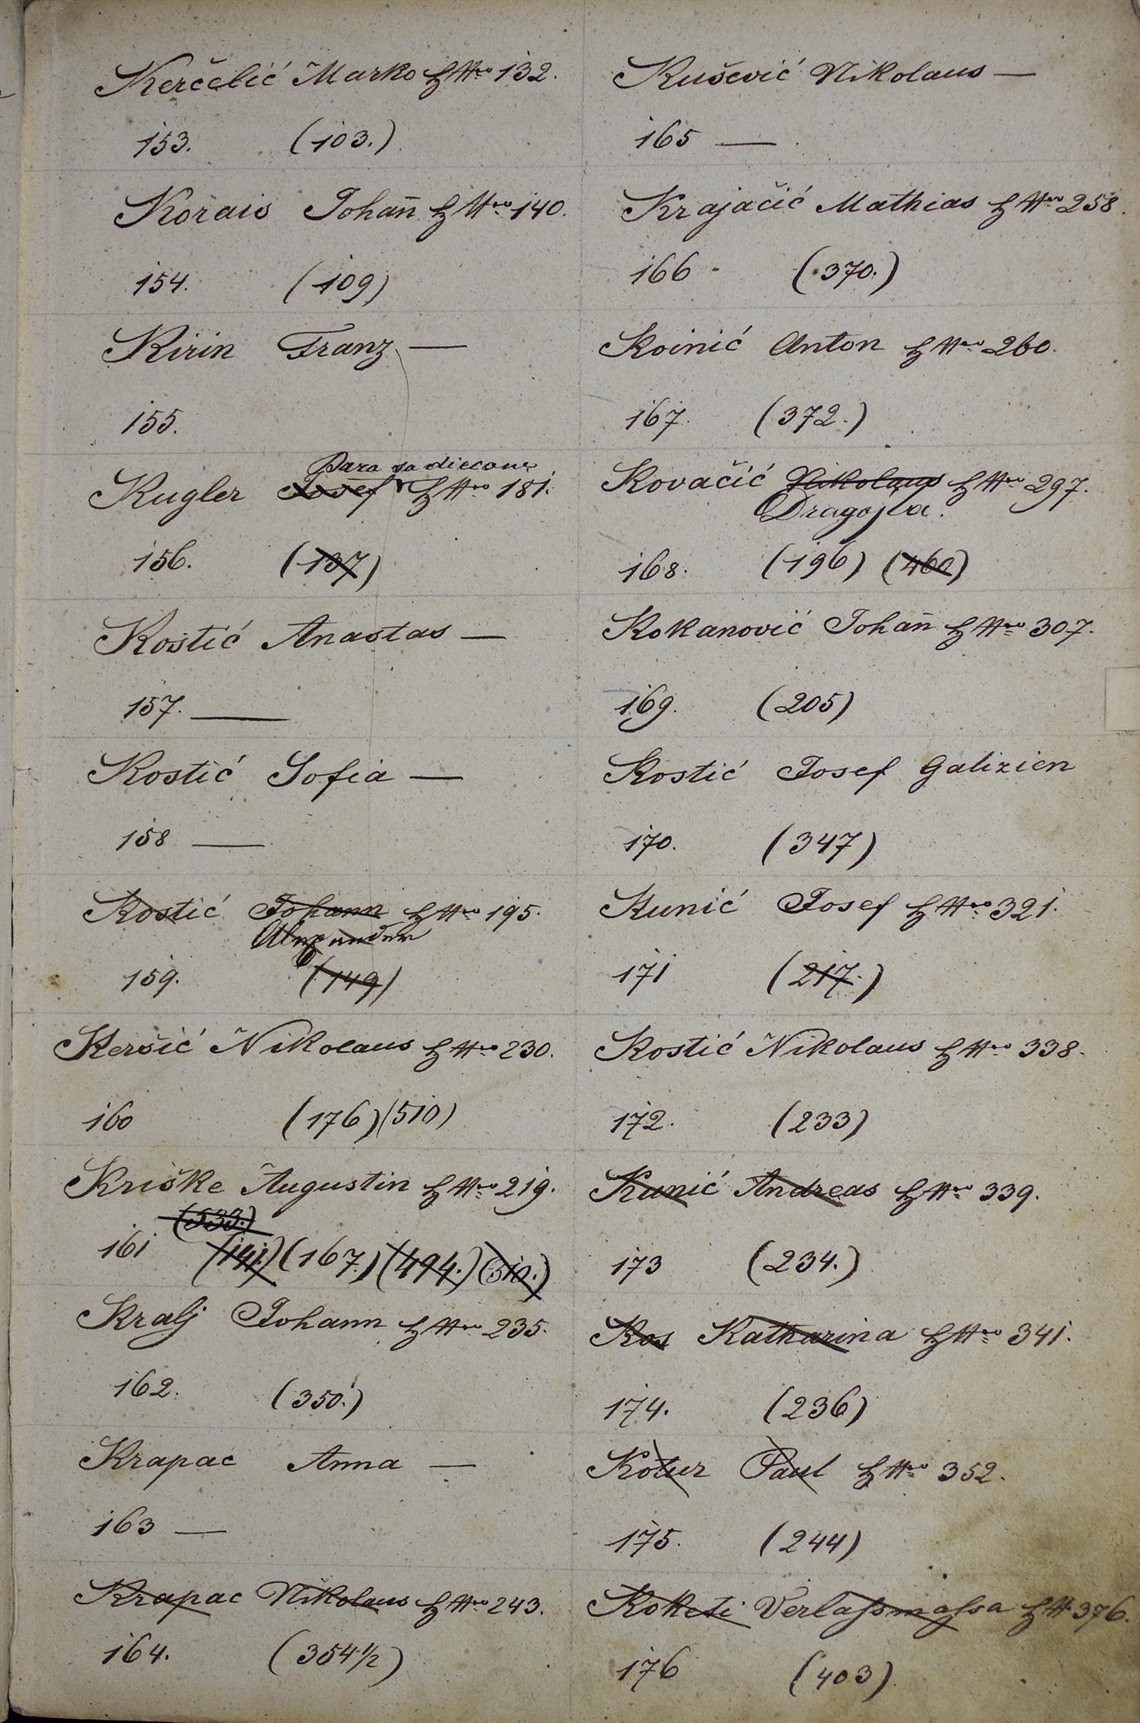 Kerčelić Marko H Nro 132.
153. (103.)
Korais Johan̄ H Nro 140.
154. (109)
Kirin Franz —
155.
Para sa diecom
Kugler Josef H Nro 181.
156. (137)
Kostić Anastas —
157. —
Kostić Sofia —
158 —
Kostić Johann H Nro 195.
Alexander
159. (149)
Keršić Nikolaus H Nro 230.
160 (176) (510)
Kriške Augustin H Nro 219.
(533.)
161 (141.) (167.) (494.) (510.)
Kralj Johann H Nro 235.
162. (350.)
Krapac Anna —
163 —
Krapac Nikolaus H Nro 243.
164. (354 1/2)
Kušević Nikolaus —
165 —
Krajačić Mathias H Nro 258.
166 (370.)
Koinić Anton H Nro 260.
167. (372.)
Kovačić Nikolaus H Nro 297.
Dragojla.
168. (196) (460)
Kokanović Johan̄ H Nro 307.
169. (205)
Kostić Josef Galizien
170. (347)
Kunić Josef H Nro 321.
171 (217.)
Kostić Nikolaus H Nro 338.
172. (233)
Kunić Andreas H Nro 339.
173 (234.)
Kos Katharina H Nro 341.
174. (236)
Kotur Paul H Nro 352.
175. (244)
Koketi Verlaßmaßa H N 376.
176 (403)